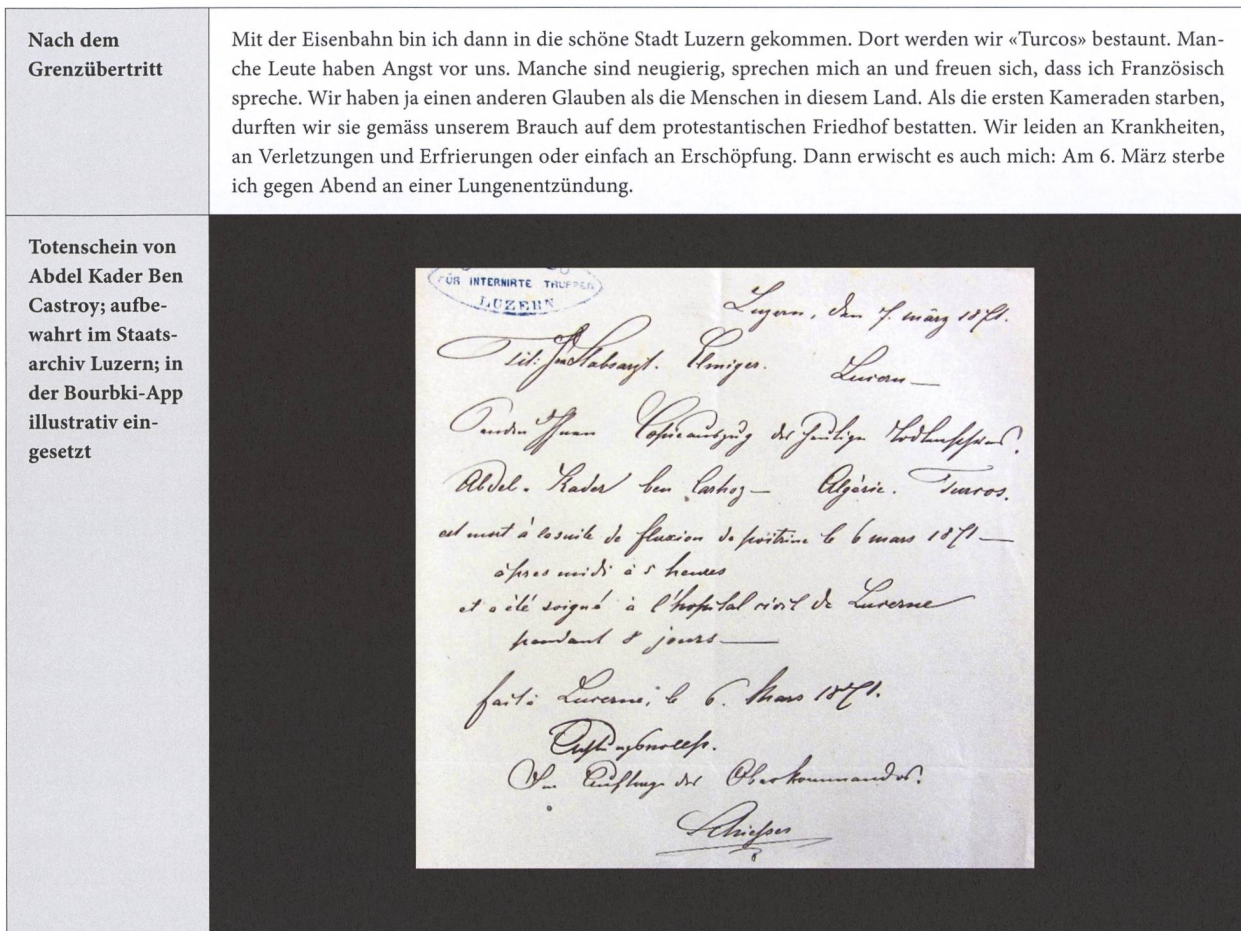 Nach dem
Grenzübertritt
Mit der Eisenbahn bin ich dann in die schöne Stadt Luzern gekommen. Dort werden wir «Turcos» bestaunt. Man-
che Leute haben Angst vor uns. Manche sind neugierig, sprechen mich an und freuen sich, dass ich Französisch
spreche. Wir haben ja einen anderen Glauben als die Menschen in diesem Land. Als die ersten Kameraden starben,
durften wir sie gemäss unserem Brauch auf dem protestantischen Friedhof bestatten. Wir leiden an Krankheiten,
an Verletzungen und Erfrierungen oder einfach an Erschöpfung. Dann erwischt es auch mich: Am 6. März sterbe
ich gegen Abend an einer Lungenentzündung.
Totenschein von
Abdel Kader Ben
Castroy; aufbe-
wahrt im Staats-
archiv Luzern; in
der Bourbki-App
illustrativ ein-
gesetzt
FÜR INTERNIRTE TRUPPEN
LUZERN
Luzern, den 7. März 1871.
Tit: Stabsarzt. Elmiger. Luzern
Ihnen Copieauszug des heutigen Todtenscheins.
Abdel-Kader ben Algérie. Turcos.
est mort à la suite de fluxion de poitrine le 6 mars 1871
après midi à 5 heures
et a été soigné à l'hopital civil de Lucerne
pendant 8 jours
fait à Lucerne, le 6. Mars 1871.
Achtungsvollst.
Im Auftrage des Oberkommandos.
Schiesser